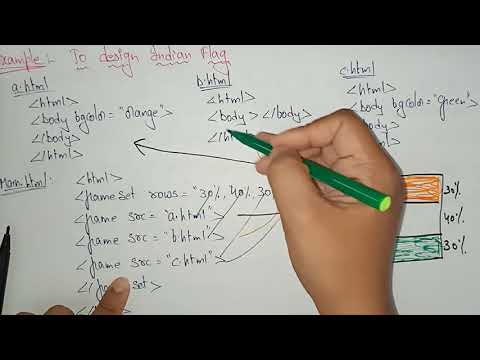 Example:- To design Indian Flag
a.html
<html>
<body bgcolor="orange">
</body>
</html>
b.html
<html>
<body> </body>
c.html
<html>
<body bgcolor="green">
</body>
Main.html:
<html>
<frameset rows="30%, 40%, 30
<frame src="a.html">
<frame src="b.html">
<frame src="c.html">
set>
30%
40%
30%